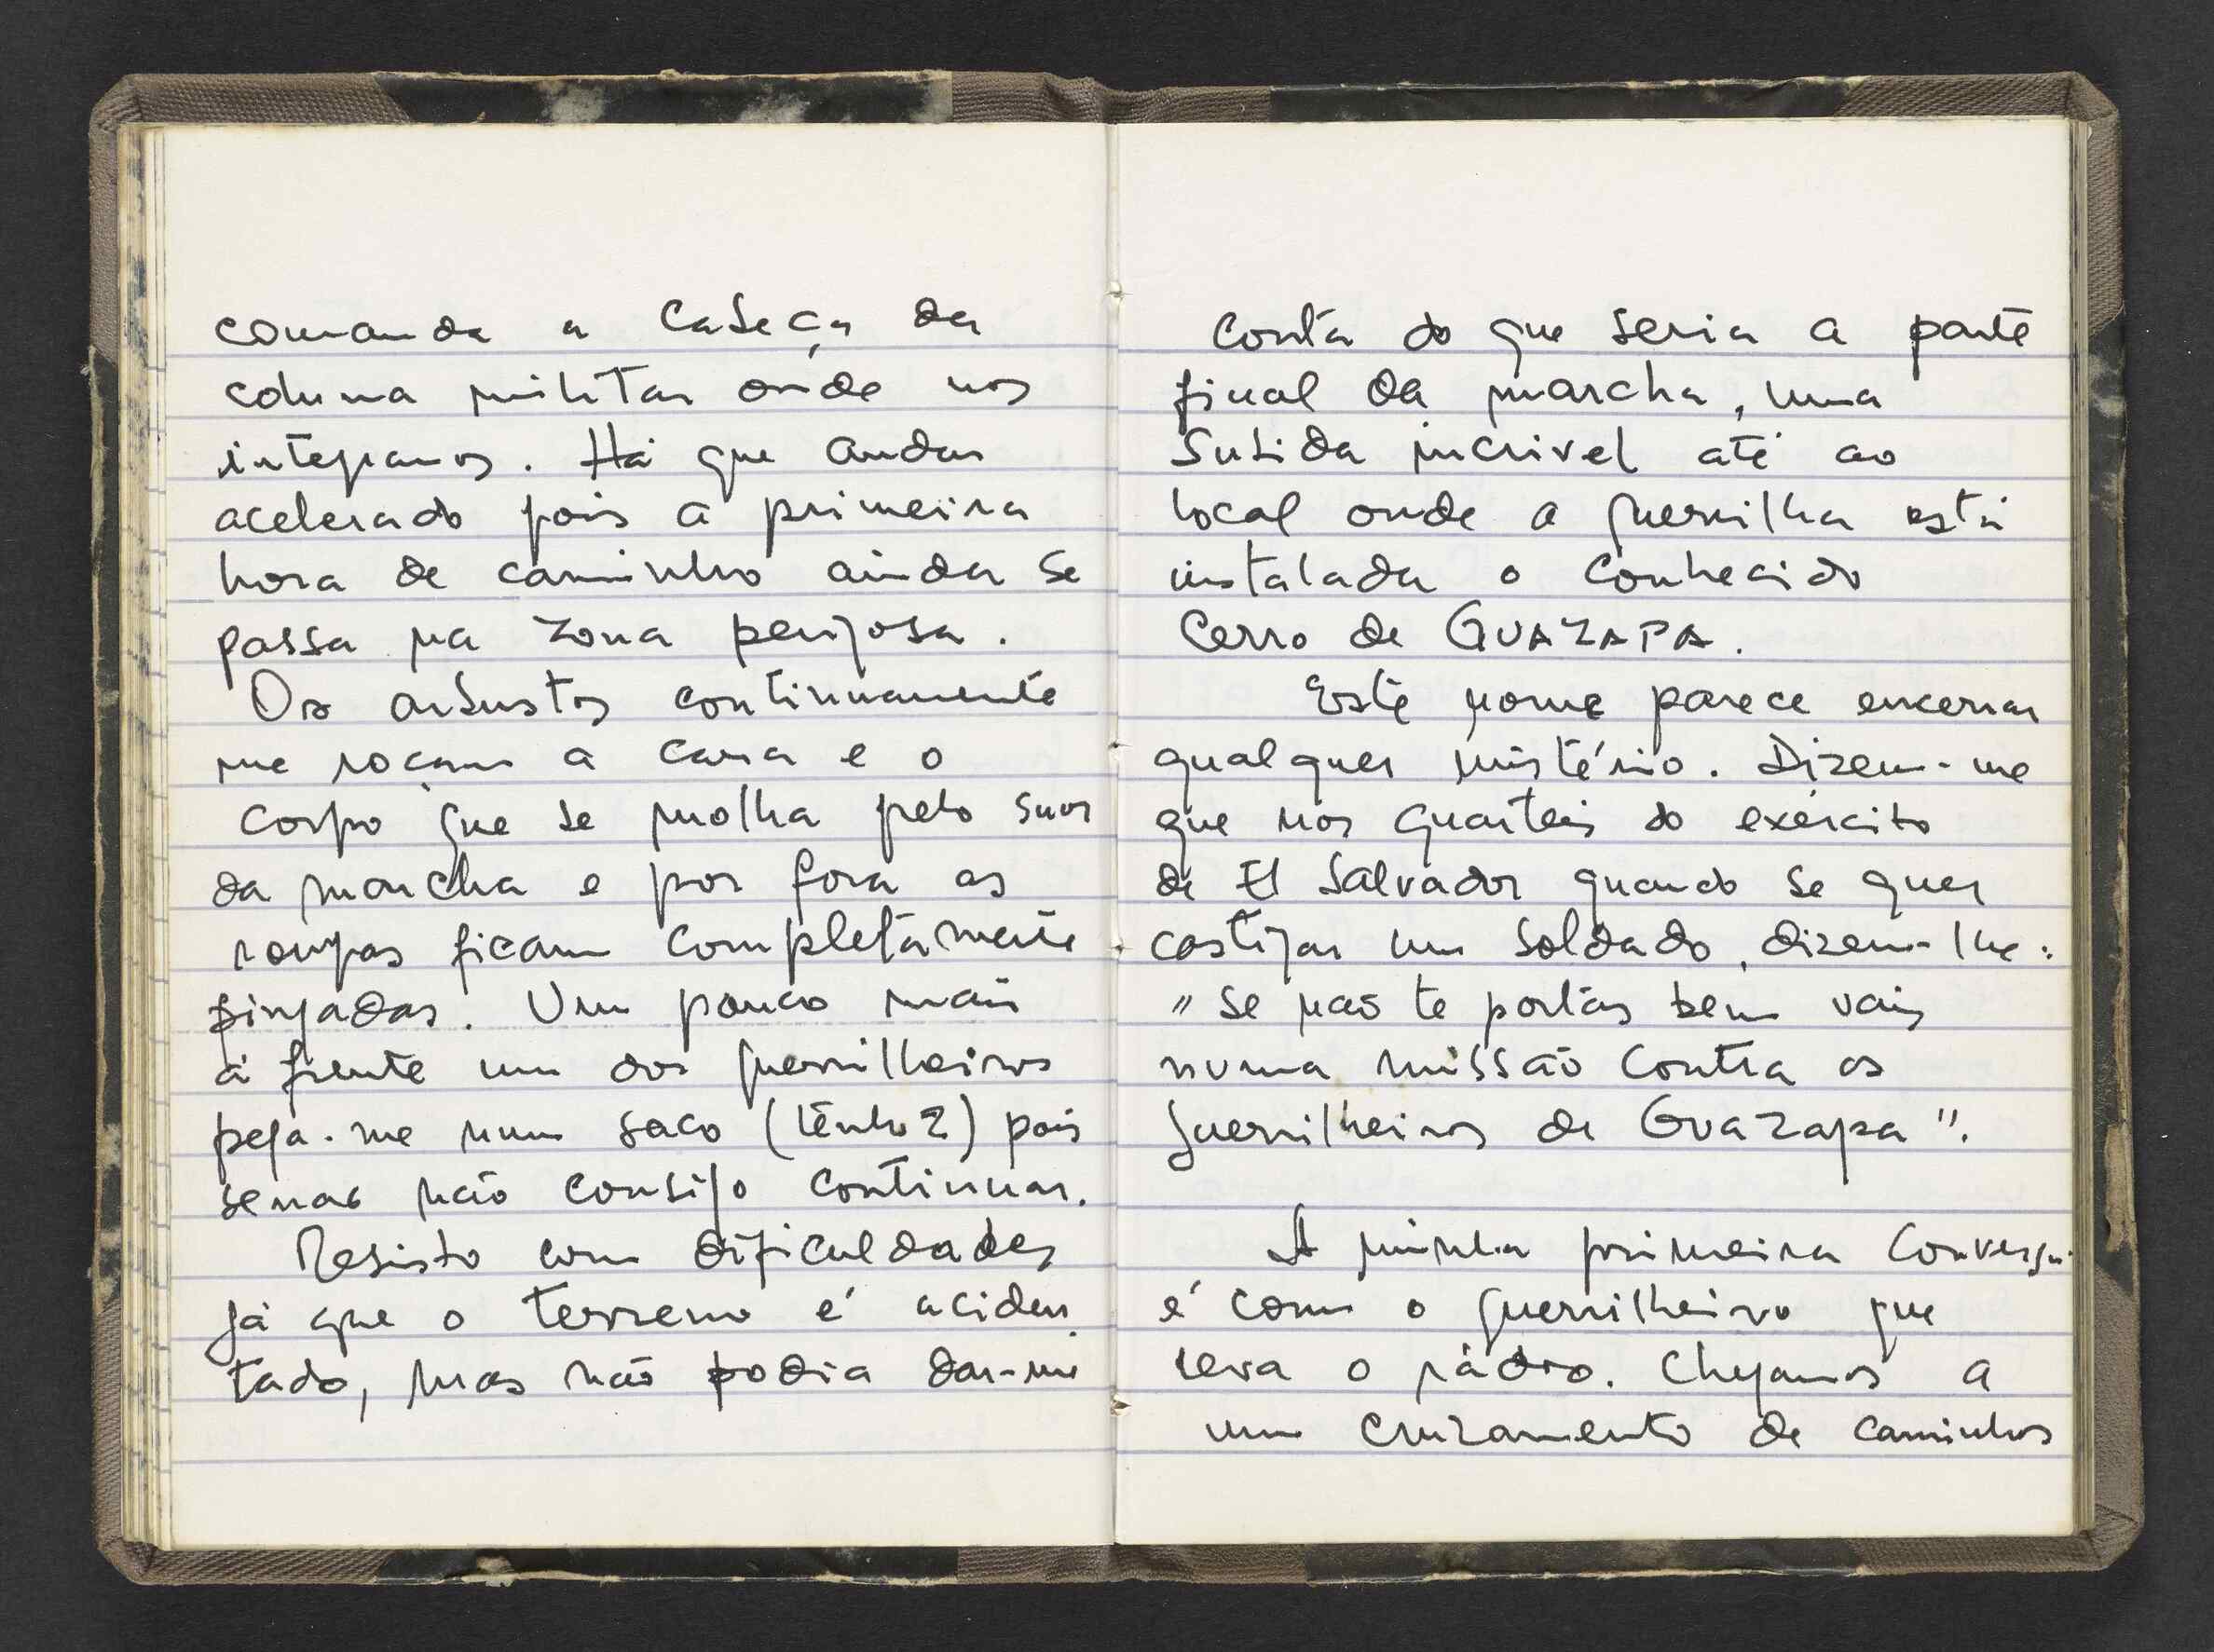 comanda a cabeça da
coluna militar onde nos
integramos. Há que andar
acelerado pois a primeira
hora de caminho ainda se
passa na zona perigosa.
Os arbustos continuamente
me roçam a cara e o
corpo que se molha pelo suor
da marcha e por fora as
roupas ficam completamente
pingadas. Um pouco mais
à frente um dos guerrilheiros
pega-me num saco (tenho 2) pois
senão não consigo continuar.
Resisto com dificuldades
já que o terreno é aciden
tado, mas não podia dar-me
conta do que seria a parte
final da marcha, uma
subida incrivel até ao
local onde a guerrilha está
instalada o conhecido
Cerro de GUAZAPA.
Este nome parece encerrar
qualquer mistério. Dizem-me
que nos quarteis do exército
de El Salvador quando se quer
castigar um soldado, dizem-lhe:
"se não te portas bem vais
numa missão contra os
guerrilheiros de Guazapa".
A minha primeira conversa
é com o guerrilheiro que
leva o rádio. Chegamos a
um cruzamento de caminhos